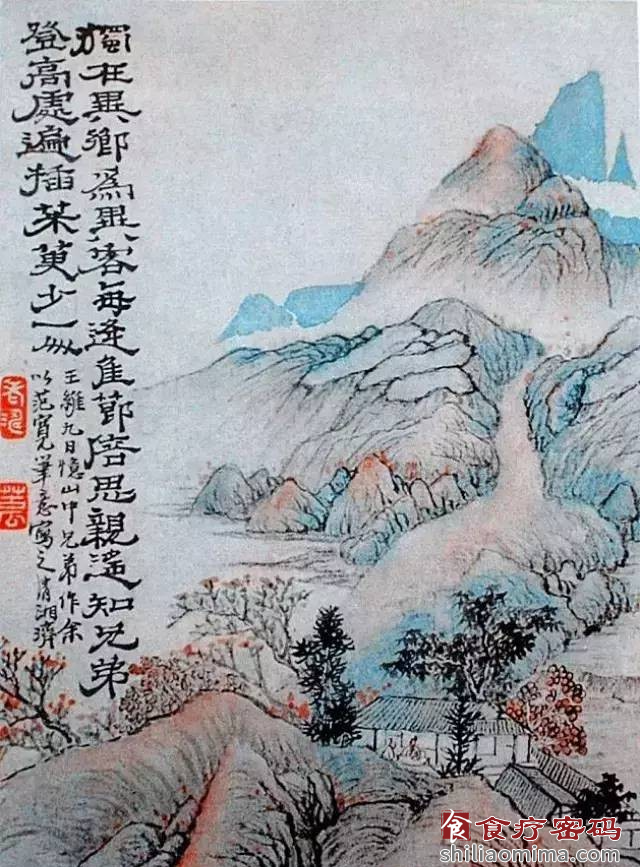 獨在異鄉爲異客每逢佳節倍思親遙知兄弟
登高處遍插茱萸少一人
王維九日憶山中兄弟作余
以范寬筆意寫之清湘濟
食 食疗密码
shiliaomima.com